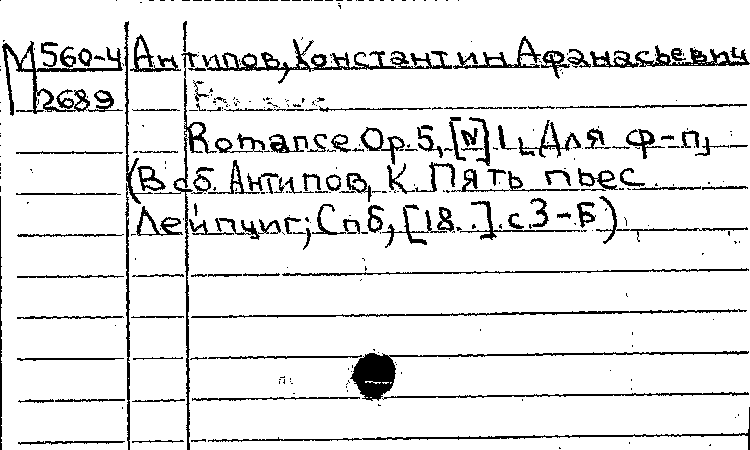 М 560-4 Антипов, Константин Афанасьевич
2689
Romance Op. 5, [N] 1 [Для ф-п]
(В сб. Антипов, К. Пять пьес
Лейпциг; Спб, [18..]. с. 3-5)